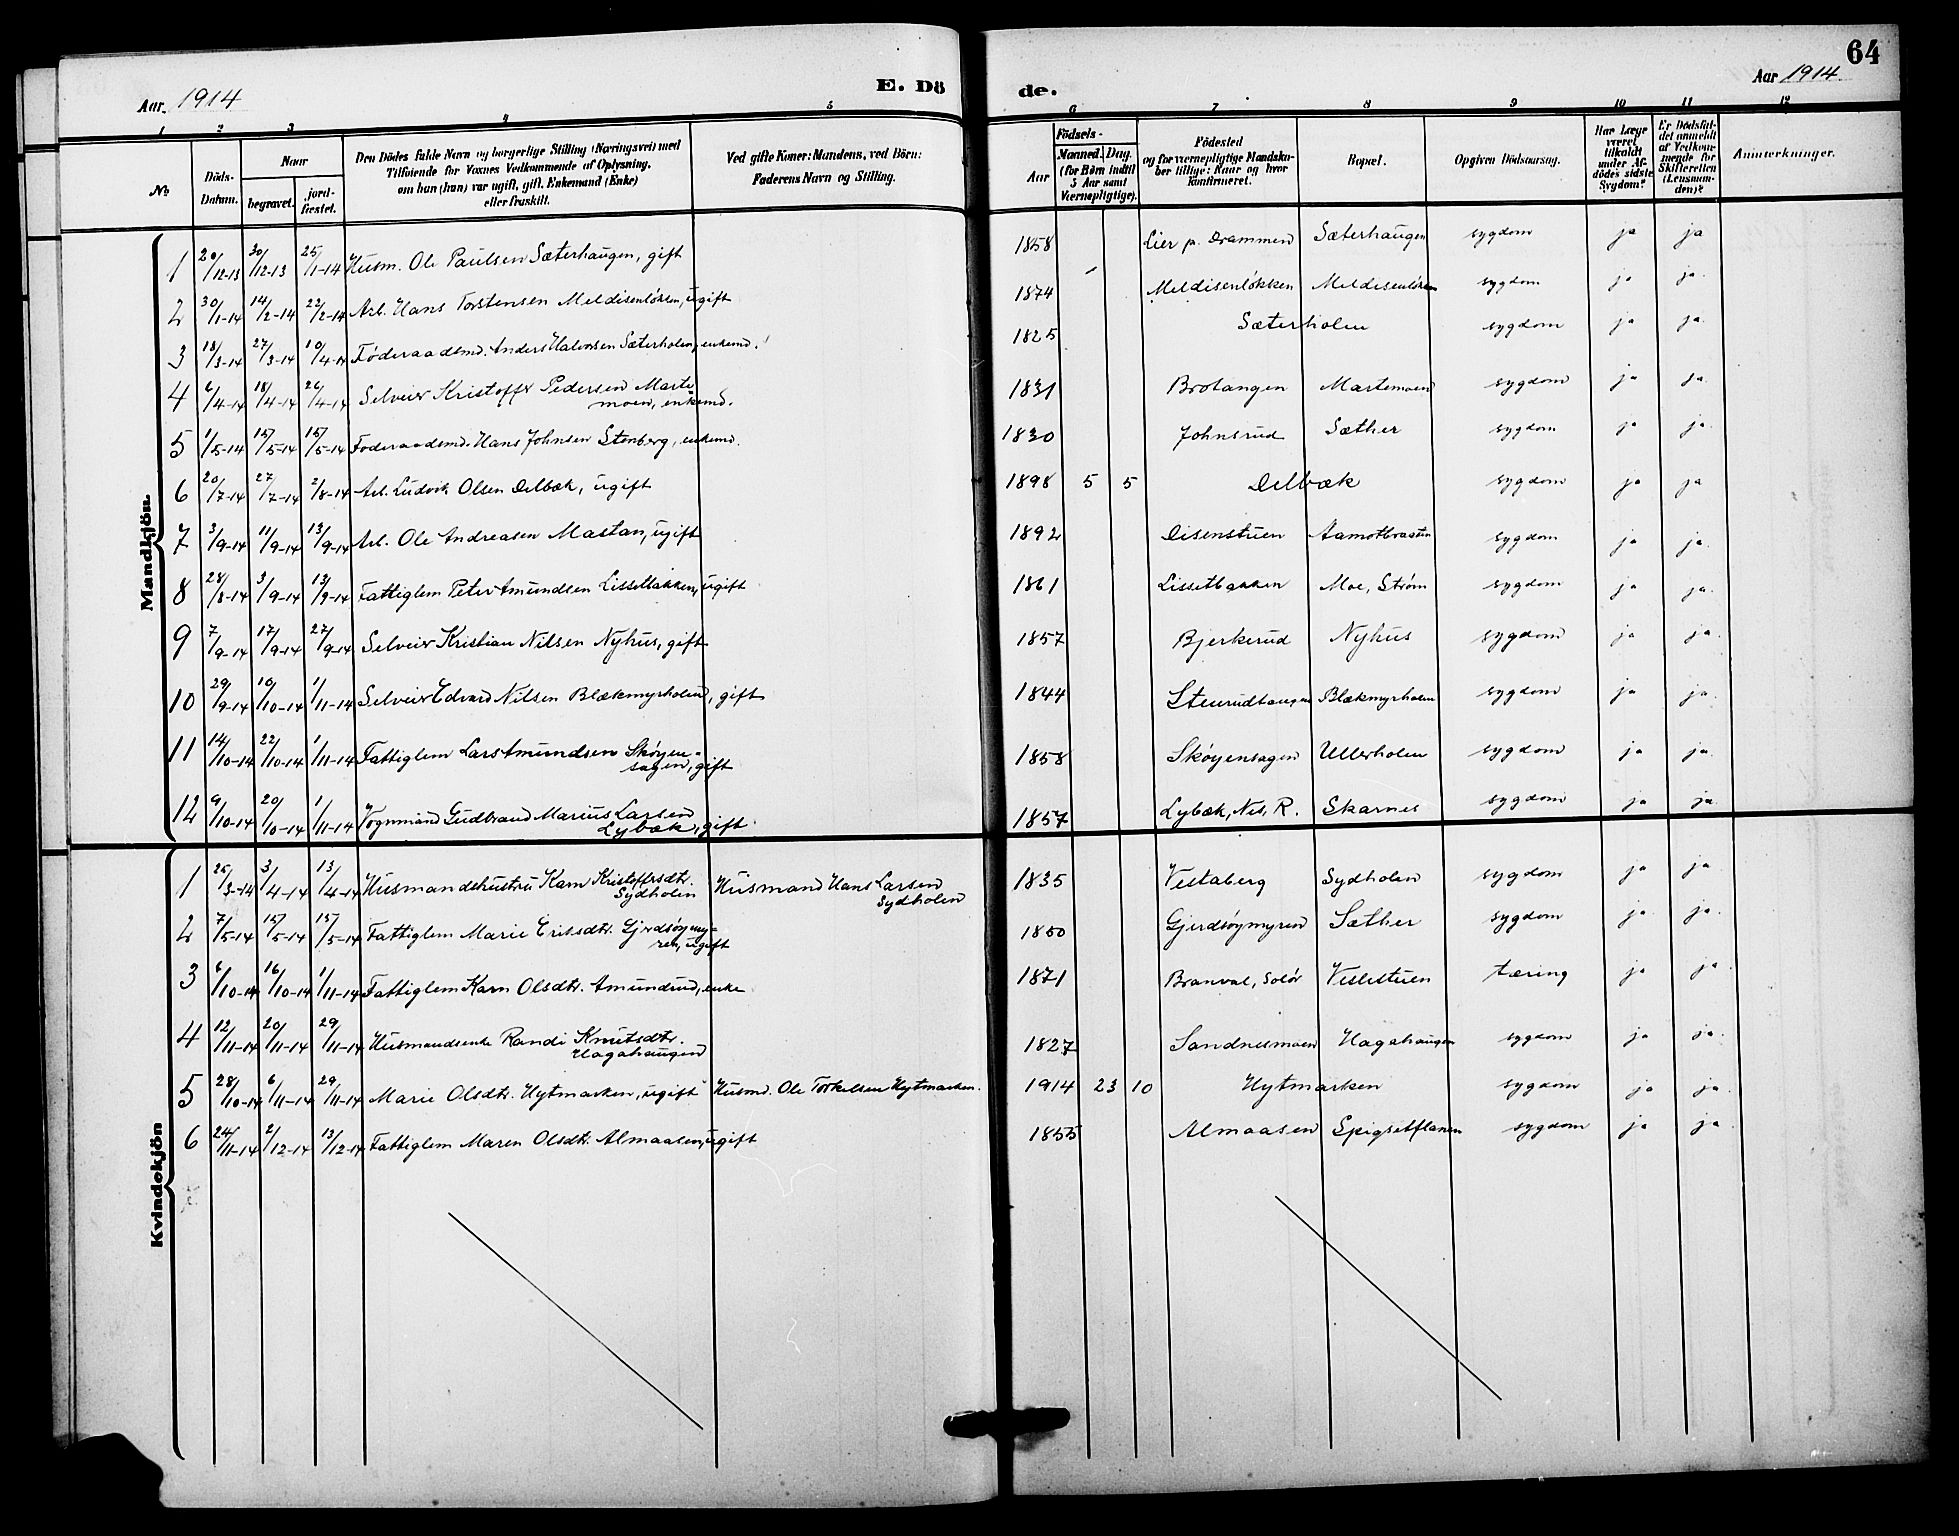 Aar 1914 E. Dö
de. Aar 1914 64
1 2 3 4 5 6 7 8 9 10 11 12
No Döds-Datum. Naar begravet. jordfæstet. Den Dödes fulde Navn og borgerlige Stilling (Næringsvei) med Tilföiende for Voxnes Vedkommende af Oplysning, om hun (han) var ugift, gift, Enkemand (Enke) eller fraskilt. Ved gifte Koner: Mandens, ved Börn: Faderens Navn og Stilling. Födsels- Aar Maaned. Dag. (for Børn indtil 5 Aar samt Værnepligtige). Födested og for værnepligtige Mandskaber tillige: Naar og hvor konfirmeret. Bopæl. Opgiven Dödsaarsag. Har Læge været tilkaldt under Afdödes sidste Sygdom? Er Dödsfaldet anmeldt af Vedkommende for Skifteretten (Lensmanden)? Anmerkninger.
Mandkjön.
1 20/12-13 30/12-13 25/1-14 Husm. Ole Paulsen Sæterhaugen, gift 1858 Lier p. Drammen Sæterhaugen sygdom ja ja
2 30/1-14 14/2-14 22/2-14 Arb. Hans Torstensen Meldisenløkken, ugift 1874 Meldisenløkken Meldisenløken sygdom ja ja.
3 18/3-14 27/3-14 10/4-14 Føderaadsmd. Anders Halvorsen Sæterholen, enkemd. 1825 Sæterholen sygdom ja ja.
4 6/4-14 18/4-14 26/4-14 Selveier Kristoffer Pedersen Marte
moen, enkemd. 1831 Brotangen Martemoen sygdom ja ja.
5 1/5-14 15/5-14 15/5-14 Foderaadsmd. Hans Johnsen Stenberg, enkemd. 1830 Johnsrud Sæther sygdom ja ja.
6 20/7-14 27/7-14 2/8-14 Arb. Ludvik Olsen Delbæk, ugift 1898 5 5 Delbæk sygdom ja ja
7 3/9-14 11/9-14 13/9-14 Arb. Ole Andreasen Mastan, ugift 1892 Disenstuen Aamotbraaten sygdom ja ja.
8 28/8-14 3/9-14 13/9-14 Fattiglem Peter Amundsen Lissetbakken, ugift 1861 Lissetbakken Moe, Strøm sygdom ja ja.
9 7/9-14 17/9-14 27/9-14 Selveier Kristian Nilsen Nyhus, gift 1857 Bjerkerud Nyhus sygdom ja ja.
10 29/9-14 10/10-14 1/11-14 Selveier Edvard Nilsen Blækmyrholen, gift 1844 Blækmyrholen sygdom ja ja.
11 14/10-14 22/10-14 1/11-14 Fattiglem Lars Amundsen Skøyen-
sagen, gift 1858 Skøyensagen Ullerholen sygdom ja ja.
12 9/10-14 20/10-14 1/11-14 Vognmand Gudbrand Marius Larsen
Lybæk, gift. 1857 Lybæk, Nes, R. Skarnes sygdom ja ja
Kvindekjön
1 26/3-14 3/4-14 13/4-14 Husmandshustru Karn Kristoffersdtr.
Sydholen Husmand Hans Larsen
Sydholen 1835 Vestaberg Sydholen sygdom ja ja.
2 7/5-14 15/5-14 15/5-14 Fattiglem Marie Eriksdtr. Gjerdsøymy-
ren, ugift 1850 Gjerdsøymyren Sæther sygdom ja. ja.
3 6/10-14 16/10-14 1/11-14 Fattiglem Karn Olsdtr. Amundrud, enke 1871 Branval, Solør Veslestuen tæring ja ja.
4 12/11-14 20/11-14 29/11-14 Husmandsenke Randi Knutsdtr.
Hagahaugen 1827 Sandnesmoen Hagahaugen sygdom ja ja.
5 28/10-14 6/11-14 29/11-14 Marie Olsdtr. Hytmarken, ugift Husmd. Ole Torkelsen Hytmarken. 1914 23 10 Hytmarken sygdom ja ja.
6 24/11-14 2/12-14 13/12-14 Fattiglem Maren Olsdtr. Almaasen, ugift 1855 Almaasen Spigsetflanen sygdom ja ja.